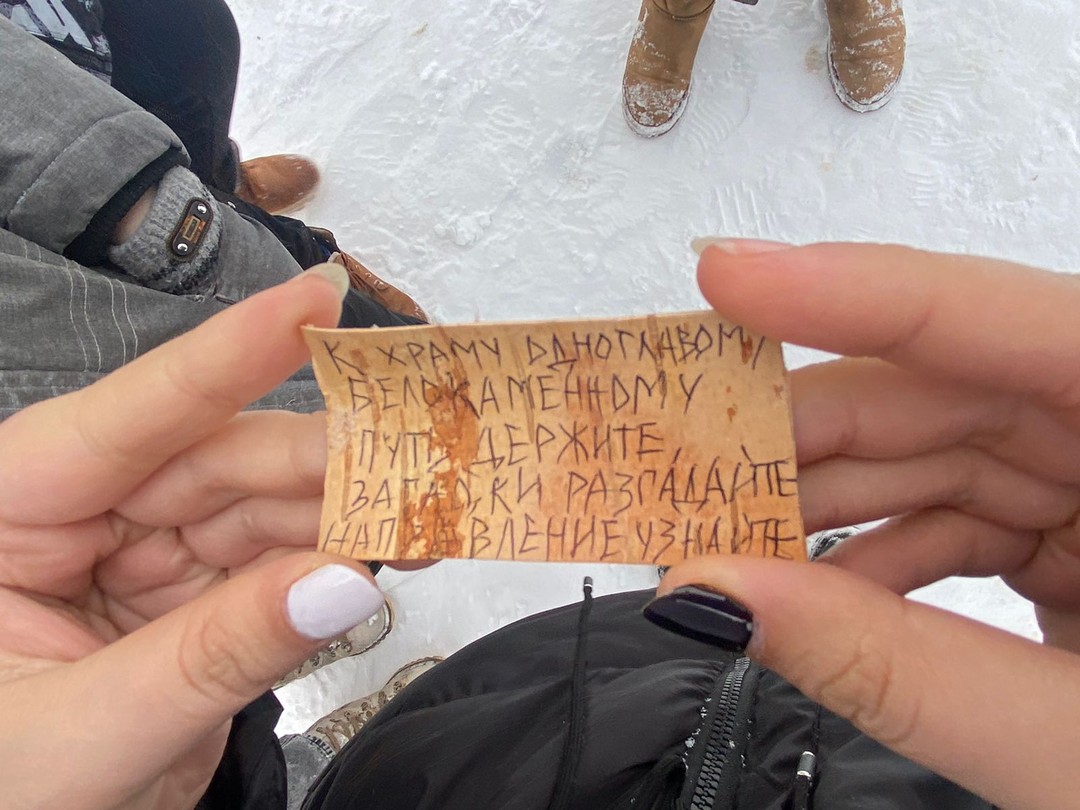 К ХРАМУ ОДНОГЛАВОМУ
БЕЛОКАМЕННОМУ
ПУТЬ ДЕРЖИТЕ,
ЗАГАДКИ РАЗГАДАЙТЕ
НАПРАВЛЕНИЕ УЗНАЙТЕ